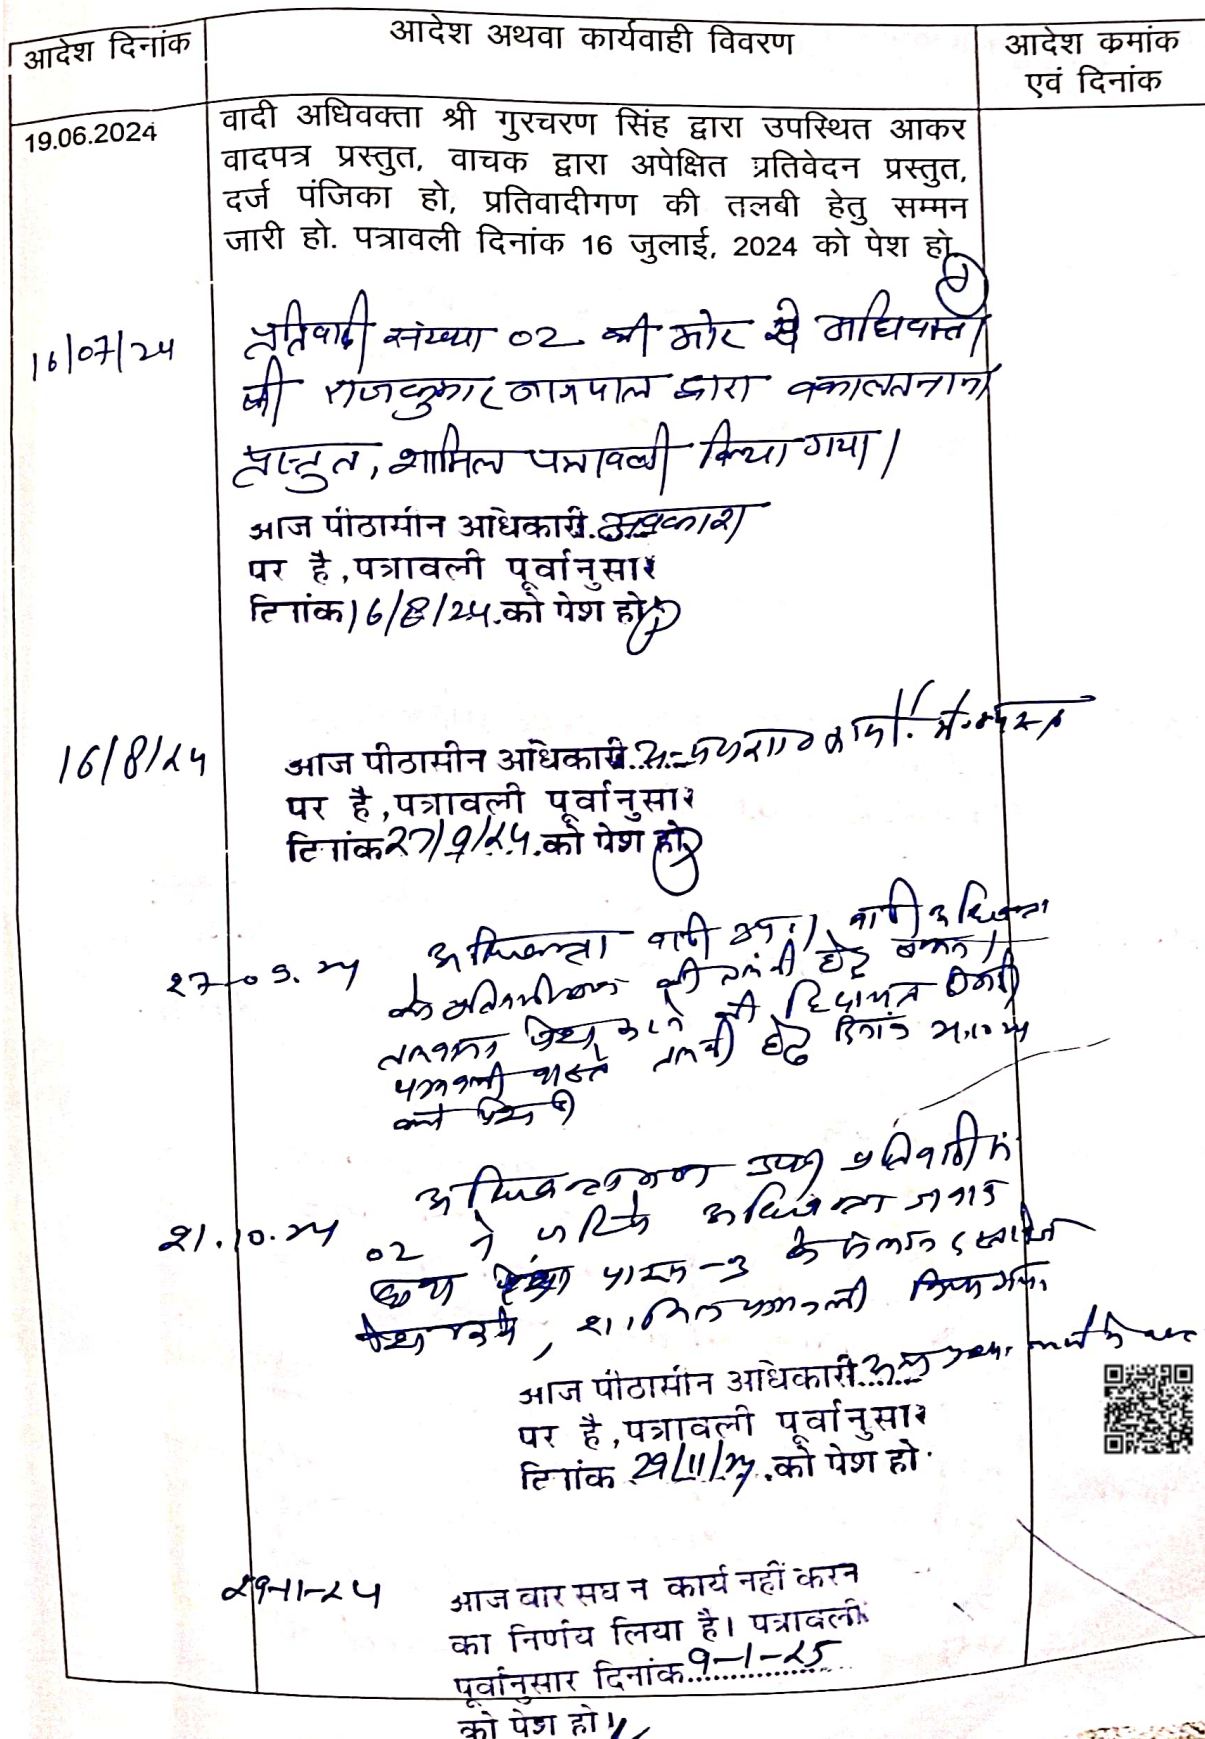 आदेश दिनांक
आदेश अथवा कार्यवाही विवरण
आदेश क्रमांक
एवं दिनांक
19.06.2024
वादी अधिवक्ता श्री गुरचरण सिंह द्वारा उपस्थित आकर
वादपत्र प्रस्तुत, वाचक द्वारा अपेक्षित प्रतिवेदन प्रस्तुत,
दर्ज पंजिका हो, प्रतिवादीगण की तलबी हेतु सम्मन
जारी हो. पत्रावली दिनांक 16 जुलाई, 2024 को पेश हो
16/07/24
प्रतिवादी संख्या 02 की ओर से अधिवक्ता
श्री राजकुमार नागपाल द्वारा वकालतनामा
प्रस्तुत, शामिल पत्रावली किया गया।
आज पीठासीन अधिकारी अवकाश
पर है, पत्रावली पूर्वानुसार
दिनांक 16/8/24 को पेश हो
16/8/24
आज पीठासीन अधिकारी
पर है, पत्रावली पूर्वानुसार
दिनांक 27/9/24 को पेश हो
27-09-24
अधिवक्ता वादी उप.। वादी अधिवक्ता
की तलबी हेतु
पेश करने की हिदायत
पत्रावली वास्ते तलबी हेतु दिनांक 21.10.24
को पेश हो
21.10.24
अधिवक्तागण उप. प्रतिवादी सं.
02 ने जरिये अधिवक्ता जवाब
पेश , शामिल पत्रावली किया गया
आज पीठासीन अधिकारी
पर है, पत्रावली पूर्वानुसार
दिनांक 29/11/24 को पेश हो
29-11-24
आज बार संघ न कार्य नहीं करन
का निर्णय लिया है। पत्रावली
पूर्वानुसार दिनांक 9-1-25
को पेश हो।